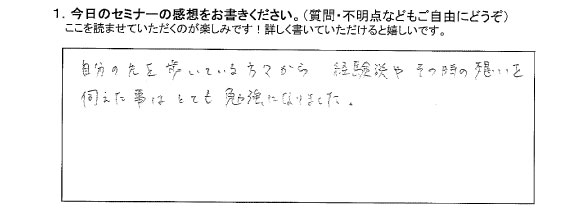 1. 今日のセミナーの感想をお書きください。(質問・不明点などもご自由にどうぞ)
ここを読ませていただくのが楽しみです！詳しく書いていただけると嬉しいです。
自分の先を歩いている方々から 経験談や その時の想いを
伺えた事は とても 勉強になりました。